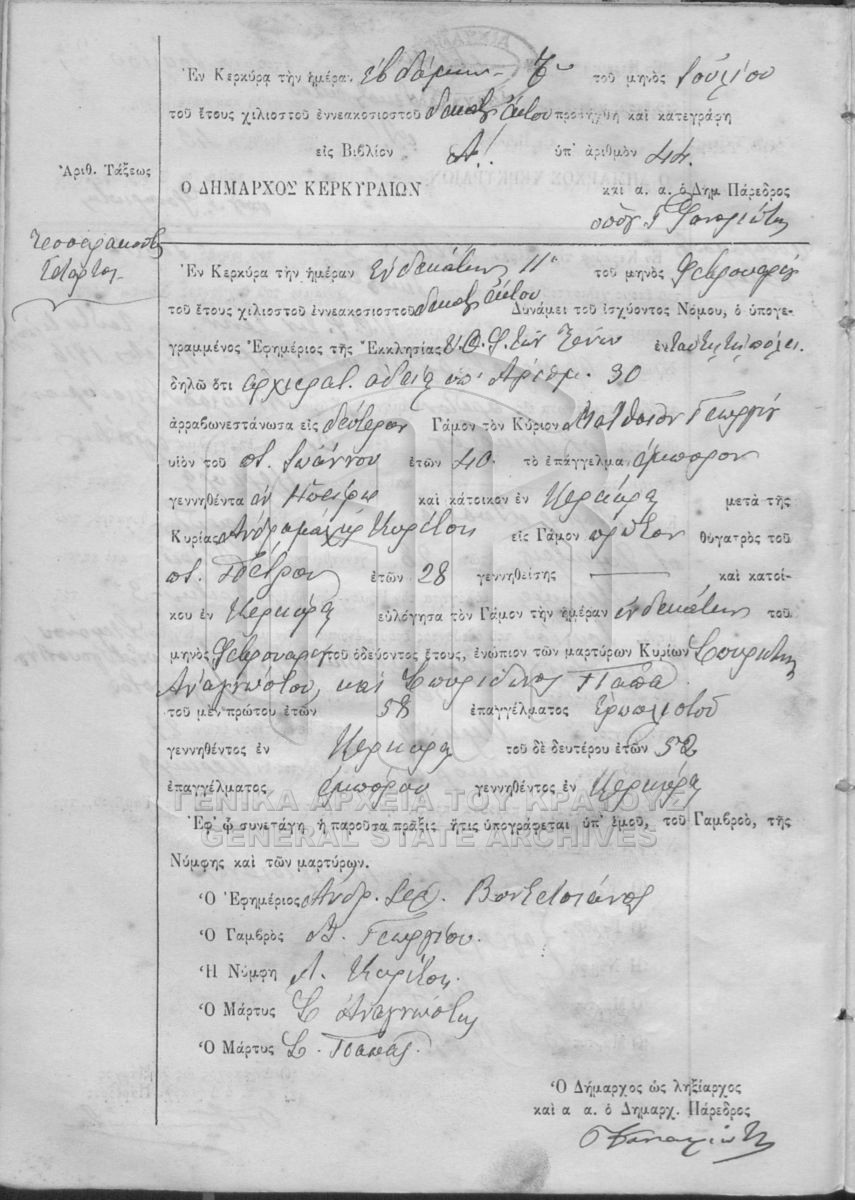 Ἐν Κερκύρᾳ τὴν ἡμέραν ἑβδόμην 7ην τοῦ μηνὸς Ἰουλίου
τοῦ ἔτους χιλιοστοῦ ἐννεακοσιοστοῦ δεκάτου ἕκτου προσήχθη καὶ κατεγράφη
εἰς Βιβλίον Α! ὑπ' ἀριθμὸν 44.
Ἀριθ. Τάξεως
Ὁ ΔΗΜΑΡΧΟΣ ΚΕΡΚΥΡΑΙΩΝ καὶ α. α. ὁ Δημ Πάρεδρος
Τεσσαρακοστὴ
Τετάρτη
Ἐν Κερκύρᾳ τὴν ἡμέραν ἑνδεκάτην 11ην τοῦ μηνὸς Φεβρουαρίου
τοῦ ἔτους χιλιοστοῦ ἐννεακοσιοστοῦ δεκάτου ἕκτου Δυνάμει τοῦ ἰσχύοντος Νόμου, ὁ ὑπογε-
γραμμένος Ἐφημέριος τῆς Ἐκκλησίας Ὑ. Θ. Φ. τῶν Ξένων ἐνταῦθα τῇ πόλει.
δηλῶ ὅτι ἀρχιερατ. ἀδείᾳ ὑπ' Ἀριθμ. 30
ἀρραβωνεστάνωσα εἰς δεύτερον Γάμον τὸν Κύριον Ματθαῖον Γεωργίου
υἱὸν τοῦ π. Ἰωάννου ἐτῶν 40 τὸ ἐπάγγελμα ἔμπορον
γεννηθέντα ἐν Ἠπείρῳ καὶ κάτοικον ἐν Κερκύρᾳ μετὰ τῆς
Κυρίας Ἀνδρομάχης Κορίτση εἰς Γάμον πρῶτον θυγατρὸς τοῦ
π. Πέτρου ἐτῶν 28 γεννηθείσης — καὶ κατοί-
κου ἐν Κερκύρᾳ εὐλόγησα τὸν Γάμον τὴν ἡμέραν ἑνδεκάτην τοῦ
μηνὸς Φεβρουαρίου τοῦ ὁδεύοντος ἔτους, ἐνώπιον τῶν μαρτύρων Κυρίων
Ἀναγνώστου, καὶ Σπυρίδωνος Παπᾶ.
τοῦ μὲν πρώτου ἐτῶν 58 ἐπαγγέλματος
γεννηθέντος ἐν Κερκύρᾳ τοῦ δὲ δευτέρου ἐτῶν 52
ἐπαγγέλματος ἐμπόρου γεννηθέντος ἐν Κερκύρᾳ
ΓΕΝΙΚΑ ΑΡΧΕΙΑ ΤΟΥ ΚΡΑΤΟΥΣ
Ἐφ' ᾧ συνετάγη ἡ παροῦσα πρᾶξις ἥτις ὑπογράφεται ὑπ' ἐμοῦ, τοῦ Γαμβροῦ, τῆς
GENERAL STATE ARCHIVES
Νύμφης καὶ τῶν μαρτύρων.
Ὁ Ἐφημέριος Ἀνδρ. Ἱερ.
Ὁ Γαμβρὸς Μ. Γεωργίου.
Ἡ Νύμφη Α. Κορίτση.
Ὁ Μάρτυς Σ. Ἀναγνώστης
Ὁ Μάρτυς Σ. Παπᾶς.
Ὁ Δήμαρχος ὡς ληξίαρχος
καὶ α α. ὁ Δημαρχ. Πάρεδρος